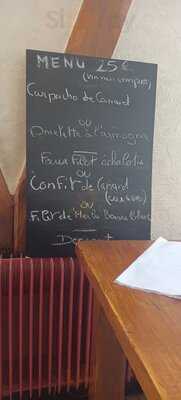 MENU 25€
(vin non compris)
Carpaccio de Canard
ou
Omelette à l'
Faux Filet échalotte
ou
Confit de Canard
(cuisse)
ou
Filet de Merlu Beurre Blanc
Dessert